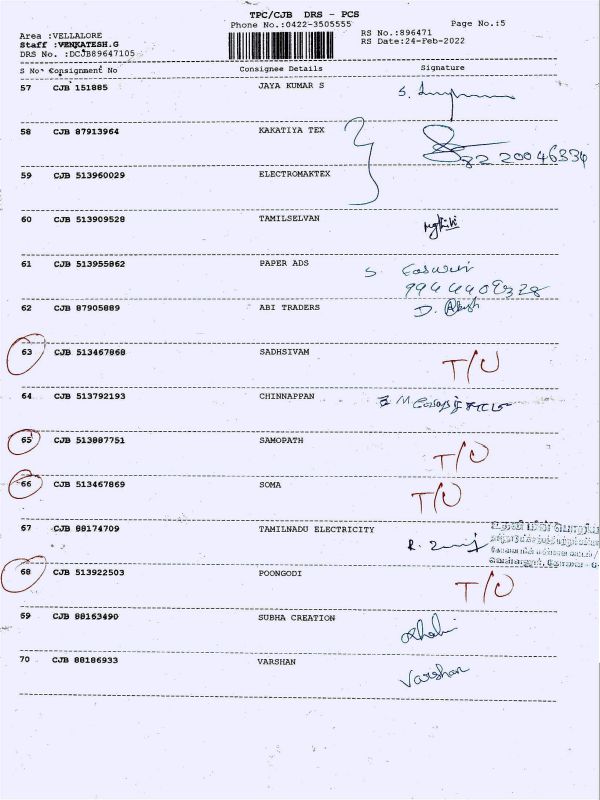 TPC/CJB DRS - PCS
Phone No.:0422-3505555
Page No.:5
Area :VELLALORE
RS No.:896471
Staff :VENKATESH.G
RS Date:24-Feb-2022
DRS No. :DCJB89647105
S No Consignment No Consignee Details Signature
57 CJB 151885 JAYA KUMAR S
58 CJB 87913964 KAKATIYA TEX
59 CJB 513960029 ELECTROMAKTEX
60 CJB 513909528 TAMILSELVAN
61 CJB 513955862 PAPER ADS S. Easwari
62 CJB 87905889 ABI TRADERS D.
63 CJB 513467868 SADHSIVAM T/U
64 CJB 513792193 CHINNAPPAN
65 CJB 513887751 SAMOPATH T/U
66 CJB 513467869 SOMA T/U
67 CJB 88174709 TAMILNADU ELECTRICITY
68 CJB 513922503 POONGODI T/U
69 CJB 88163490 SUBHA CREATION
70 CJB 88186933 VARSHAN Varshan